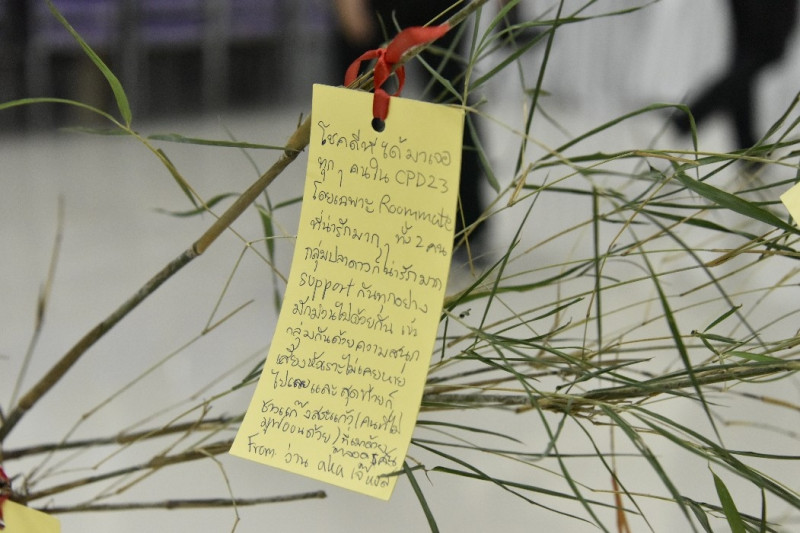 โชคดีที่ได้มาเจอ
ทุกๆ คนใน CPD23
โดยเฉพาะ Roommate
ที่น่ารักมากๆ ทั้ง 2 คน
กลุ่มปลาดาวก็น่ารักมาก
support กันทุกอย่าง
มักม่วนไปด้วยกัน เข้า
กลุ่มกันด้วยความสนุก
เสียงหัวเราะไม่เคยหาย
ไปเลยและสุดท้ายก็
ชาวแก๊งสระแก้ว (คนที่ไม่
มูฟออนด้วย) ที่มาด้วย
From ว่าน aka เจ๊